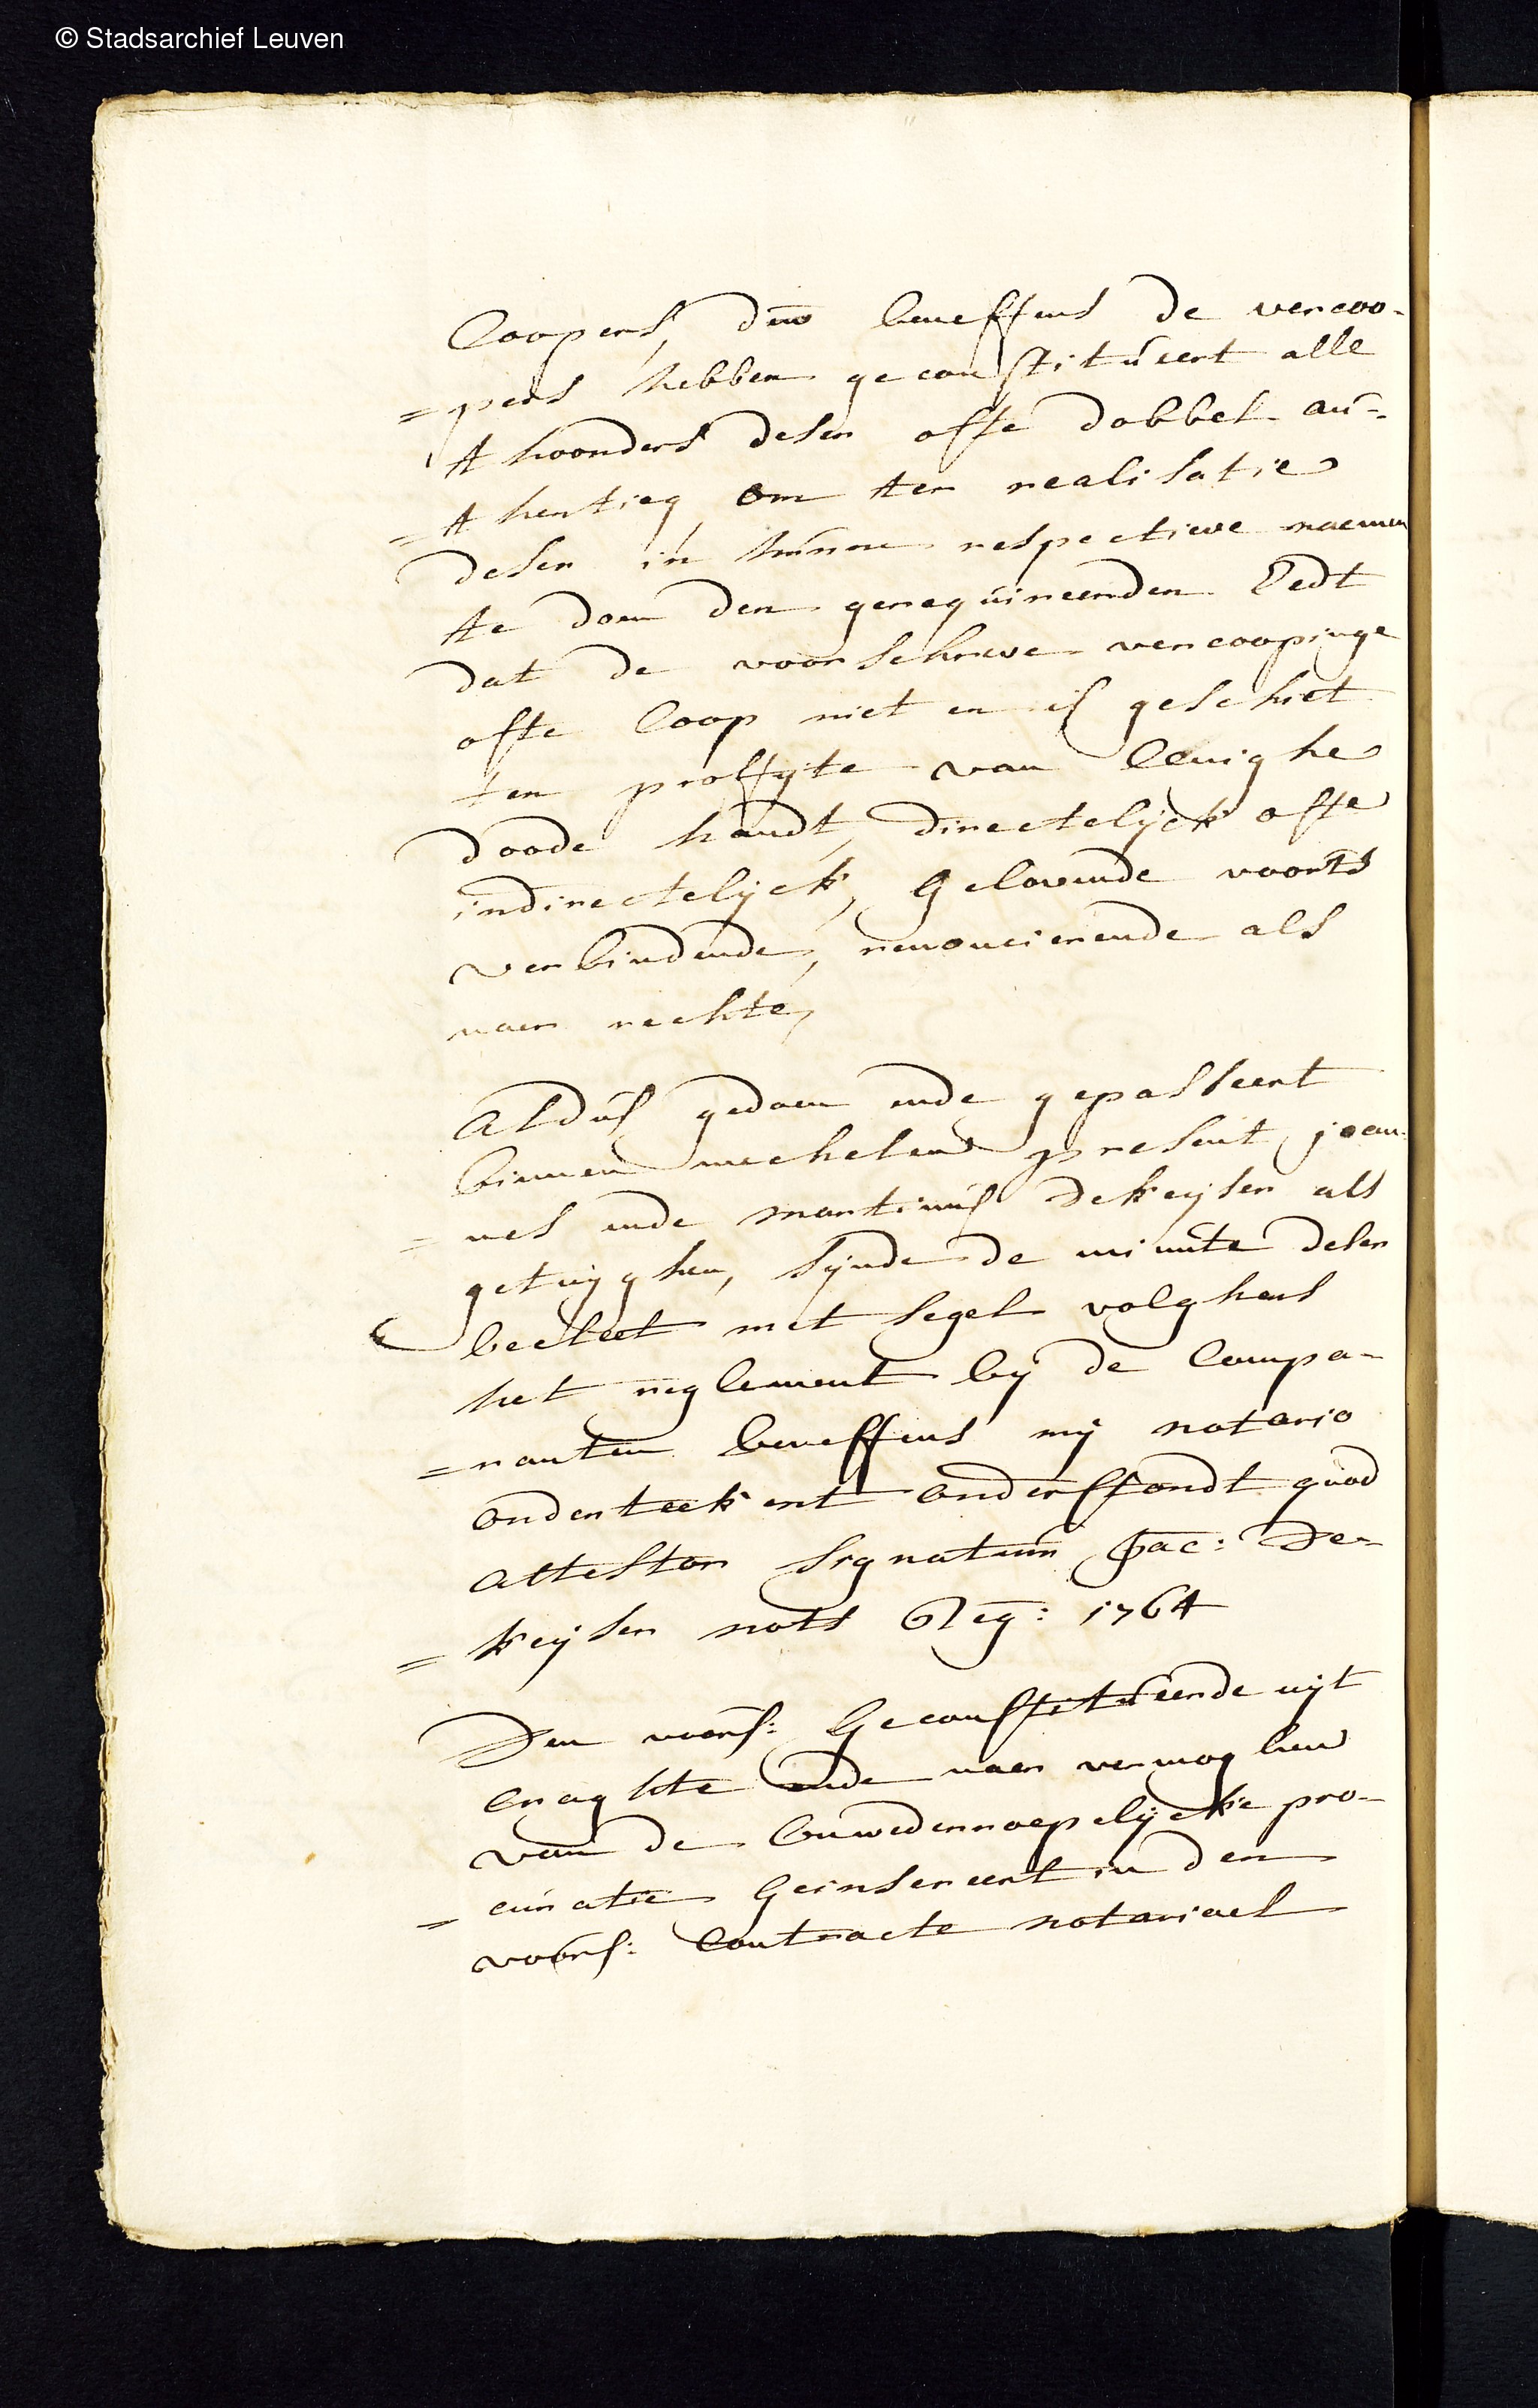 © Stadsarchief Leuven
Coopers, die beneffens de vercoo-
=pers hebben geconstitueert alle
thoonders deser ofte dobbel au-
=thentieq, om ter realisatie
deser in hunne respectieve naemen
te doen den gerequireerden Eedt
dat de voorschreve vercoopinge
ofte Coop niet en is geschiet
ten proffyte van Eenighe
doode handt, directelyck ofte
indirectelyck, Gelovende voorts
verbindende, renoncierende als
naer rechte,
Aldus gedaen ende gepasseert
binnen mechelen present, joan-
=nes ende martinus Dekeyser als
getuyghen, synde de minute deser
becleet met segel volghens
het reglement by de Compa-
=ranten beneffens my notario
onderteekent onderstondt quod
attestor signatum Jac: De-
=keyser nots Reg: 1764
Den voors: Geconstitueerde uyt
craghte ende naer vermoghen
van de Onwederroepelycke pro-
=curatie Geinsereert in den
voors: Contracte notariael